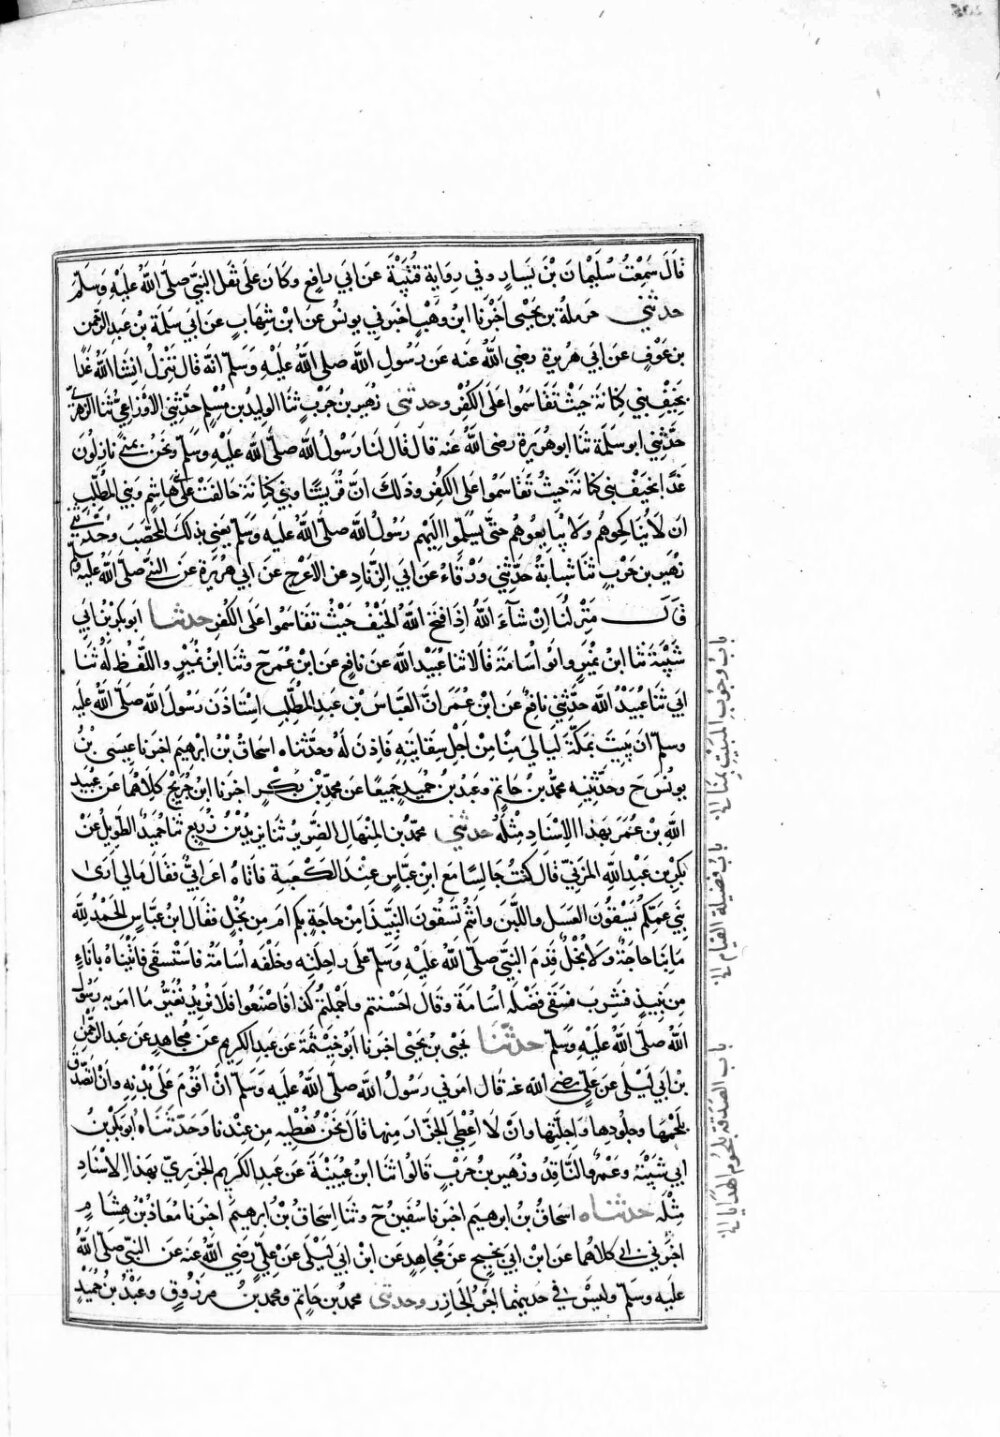 قَالَ سَمِعْتُ سُلَيْمَانَ بْنَ يَسَارٍ وفي رِوَايَةِ قُتَيْبَةَ عَنْ ابي رافِعٍ وكَانَ عَلَى ثَقَل النَّبِيّ صَلَّى اللهُ عَلَيْهِ وَسَلَّمَ
حدثني حرملة بن يَحْيَى اخْبَرَنَا ابن وَهْب اخبرني يونسُ عَنِ ابْنِ شِهَابٍ عَن ابي سَلَمَة بْن عبد الرحمن
بن عَوْفٍ عَن ابي هريرة رضي اللهُ عَنه عَن رَسُولِ الله صلى اللهُ عَلَيْهِ وَسَلَّمَ انَّه قَالَ نَنْزِلُ انشَا اللهُ غَدًا
بخَيْفِ بني كِنَانَة حَيْثُ تَقَاسَمُوا عَلَى الكُفْرِ وحدثني زُهَير بن حَرْبٍ ثنا الوليد بن مُسْلِمٍ حدَّثني الاوْزَاعيُّ ثنا الزهريُّ
حَدَّثني ابو سَلَمة ثنا ابو هُرَيرة رضي اللهُ عَنه قالَ قَالَ لنَا رَسُولُ اللهِ صَلَّى الله عَلَيْهِ وَسَلَّم ونَحْنُ بمنًى نازِلُونَ
غَدًا بخَيْفِ بني كنَانَةَ حَيْثُ تَقَاسَمُوا عَلَى الكُفْرِ وذلكَ انَّ قُرَيشًا وبَني كِنَانَة حَالَفَتْ عَلَى بني هَاشِمٍ وبَني المُطَّلِبِ
ان لَا يُنَاكِحُوهُم وَلَا يُبَايِعُوهُم حتَّى يُسَلِّمُوا اليهِم رَسُولَ الله صلَّى اللهُ عَلَيه وَسَلَّم يَعني بذلكَ المُحَصَّبَ وحَدَّثَني
زُهَير بن حَرْبٍ ثَنَا شَبَابَةُ حَدَّثني وَرْقَاءُ عَنْ ابي الزِّنَادِ عن الاعْرَجِ عَن ابي هُرَيْرَة عَنِ النَّبِيِّ صَلَّى اللهُ عَلَيْهِ وسلم
قَالَ مَنْزِلُنَا إنْ شَآءَ اللهُ اذَا فَتَحَ اللهُ الخَيْفُ حَيْثُ تقاسَمُوا عَلَى الكُفرِ حدثنا ابو بكر بن ابي
شَيْبَةَ ثَنَا ابْن نُمَيْرٍ وابُو اُسَامَةَ قَالَا ثنا عُبَيْد الله عَن نَافِعٍ عَن ابن عُمَر ح وثَنَا ابنُ نُمَيْرٍ واللَّفْظُ لَهُ ثَنَا
ابي ثنَا عُبَيْدُ الله حَدَّثني نافِعٌ عَن ابْنِ عُمَرَ انَّ العَبَّاسَ بْن عَبدِ المُطَّلِبِ اسْتَاذَنَ رَسُولَ الله صَلَّى اللهُ عَلَيه
وسلّم انْ يَبِيتَ بمَكَّةَ لَيَالِي مِنًا مِنْ اَجْلِ سِقَايَتِهِ فَاَذِنَ لَهُ وحَدَّثَنَاه اسحَاقُ بْنُ ابرهيم اخبرنا عيسَى بْنُ
يونسَ ح وحَدَّثَنِيه محمَّد بْن حَاتمٍ وعَبْد بن حُمَيدٍ جَميعًا عَن محمّدِ بْن بَكْرٍ اخبَرنا ابنُ جُرَيْجٍ كِلَاهُمَا عَن عُبَيد
اللهِ بْن عُمَر بهَذا الاِسْنَادِ مِثْلَهُ حدثني محمّد بن المِنْهَال الضَّريرُ ثنا يَزِيدُ بْنُ زُرَيعٍ ثنا حُمَيدٌ الطَّويلُ عَنْ
بَكْرِ بن عَبْدِ اللّهِ المزَنيِّ قَالَ كنْتُ جَالِسًا مَعَ ابْنِ عَبَّاسٍ عِنْدَ الكَعْبَةِ فاتَاهُ اعرَابيٌّ فقَالَ مَا لي اَرَى
بَنِي عَمِّكُم يَسْقُونَ العَسَلَ واللَّبَنَ وانْتُم تَسْقُونَ النَّبِيْذَ اَمِنْ حَاجَةٍ بِكم ام مِن بُخْلٍ فقَالَ ابنُ عبّاسٍ الحَمْدُ للهِ
مَا بنَا حاجَةٌ وَلَا بُخْلٌ قَدِمَ النَّبِيُّ صَلّى اللهُ عَلَيْهِ وَسَلَّمَ عَلَى رَاحِلَتِه وخَلْفَه اُسَامَةُ فاسْتَسْقَى فاَتَيْنَاهُ بِاَنَاءٍ
مِن نَبِيذٍ فَشَرِبَ وَسَقَى فَضْلَه اُسَامَةَ وَقَال اَحْسَنتم واَجْمَلتُم كَذَا فَاصْنَعُوا فلَا نُريدُ تُغَيِّرُ مَا امَرَ به رَسُولُ
اللهِ صَلَّى اللهُ عَلَيْهِ وَسَلَّم حدثنا يَحيَى بن يَحيَى اخبرنَا ابُو خَيْثَمَةَ عَن عَبد الكَريم عَن مُجَاهِدٍ عَن عَبد الرَّحْمن
بْنِ ابي لَيْلَى عَن عَلِيٍّ رضي الله عَنه قَالَ امَرني رَسُولُ الله صلَّى اللهُ عَلَيه وَسَلَّمَ اَنْ اقُومَ عَلَى بُدْنِهِ وَاَنْ اتَصَدَّق
بلَحْمِهَا وجُلُودِهَا واَجِلَّتِهَا وَانْ لَا اُعْطِيَ الجَزَّارَ مِنهَا قَالَ نَحْنُ نُعْطِيهِ مِن عِنْدِنَا وَحَدَّثَنَاهُ ابُو بَكْر بنُ
ابي شَيْبَةَ وعَمْرٌو النَّاقِدُ وزُهَيرُ بنُ حَرْبٍ قَالُوا ثنَا ابنُ عُيَيْنَةَ عَن عَبدِ الكَريم الجَزَرِيِّ بهَذا الاِسْنَادِ
مِثْلَه حدثناه اسحَاقُ بْنُ ابرهيمَ اخبرنَا سُفْيٰنُ ح وثَنَا اِسحَاقُ بْنُ ابرهيمَ اخبَرنَا مُعَاذُ بْنُ هِشَامٍ
اخبَرَني ابي كلَاهُمَا عَن ابْنِ ابي نَجِيحٍ عَن مُجَاهِدٍ عَن ابْنِ ابي لَيْلَى عَنْ عَلِيٍّ رَضِيَ اللهُ عَنه عَنِ النَّبِيِّ صَلّى اللهُ
عَلَيه وَسَلَّم وَلَيسَ في حَديثِهِمَا اَجْرُ الجَازِرِ وحدثني محمد بْن حَاتِمٍ ومحمد بنُ مَرزُوقٍ وعَبْدُ بن حُمَيْدٍ
باب وجوب المبيت بمِنًا الخ
باب فضيلة القيام الخ
باب الصَّدَقَة بلحُومِ الهَدَايَا الخ